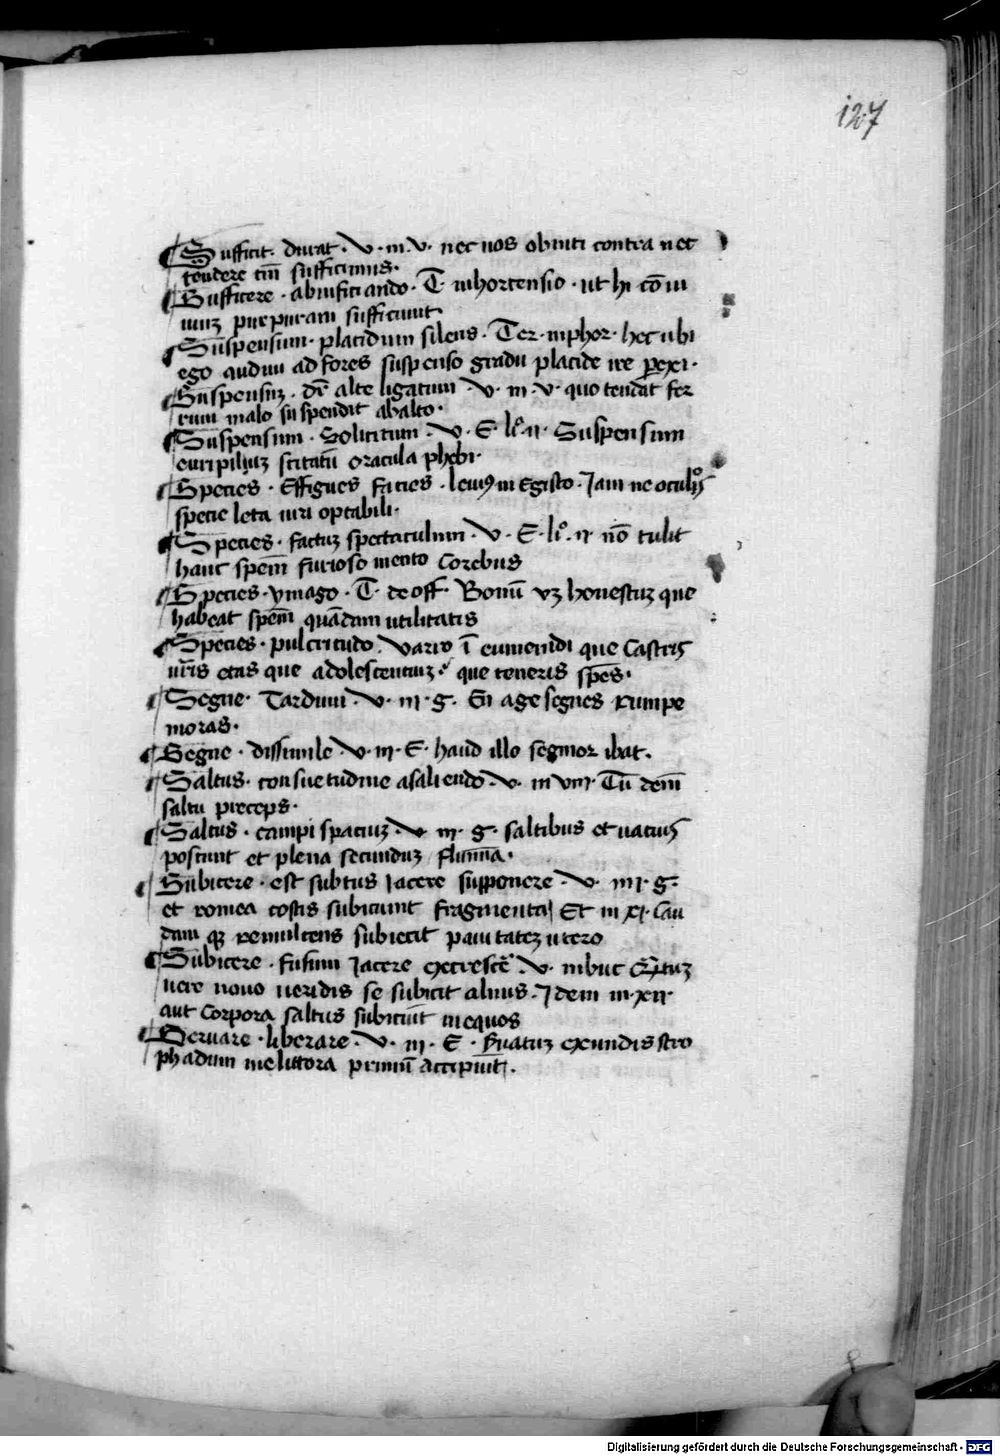 127
Sufficit. durat. v. in. v. nec nos obniti contra nec
tendere tm̄ sufficimus.
Sufficere. abinficiando. T. inhortensio. ut hi cō ui
uiuȝ purpuram sufficiunt
Suspensum. placidum silens. Ter. inphor. hec ubi
ego audiui ad fores suspenso gradu placide ire ꝑexi.
Suspensuȝ. dē alte ligatum. v. in. v. quo tendat fer
rum malo suspendit abalto.
Suspensum. Solicitum. v. E. liº. ii. Suspensum
euripiluȝ scitatū oracula phebi.
Species. Effigues facies. leuiꝰ in Egisto. Jam ne oculis
specie leta iuri optabili.
Species. factuȝ spectaculum. v. E. liº. ii. nō tulit
hanc spēm furioso mento Corebus
Species. ymago. T. de off. Bonū vȝ honestuȝ que
habeat spēm quādam utilitatis
Species. pulcritudo. varro ī eumenidi que Castris
ur̄is etas que adolescentuiȝ. que teneris spēs.
Segne. Tardum. v. iii. g. En age segnes rumpe
moras.
Segne. dissimile. v. iii. E. haud illo segnior ibat.
Saltus. consuetudine asaliendo. v. in viiii. Tū dem̄
saltu preceps.
Saltus. campi spaciuȝ. v. iii. g. saltibus et uacuis
poscunt et plena secunduȝ flumīa.
Subicere. est subtus Jacere supponere. v. iiii. g.
et romea costis subiciunt fragmenta Et in xi. Cau
dam qȝ remulcens subiecit pauitateȝ utero
Subicere. susum Jacere excrescē. v. inbuc Qȝtuȝ
uere nouo ueridis se subicit alnus. Jdem in. xii
aut Corpora saltus subiciūt inequos
Seruare. liberare. v. iii. E. Suatuȝ exundis stro
phadum me littora primū accipiūt.
Digitalisierung gefördert durch die Deutsche Forschungsgemeinschaft - DFG